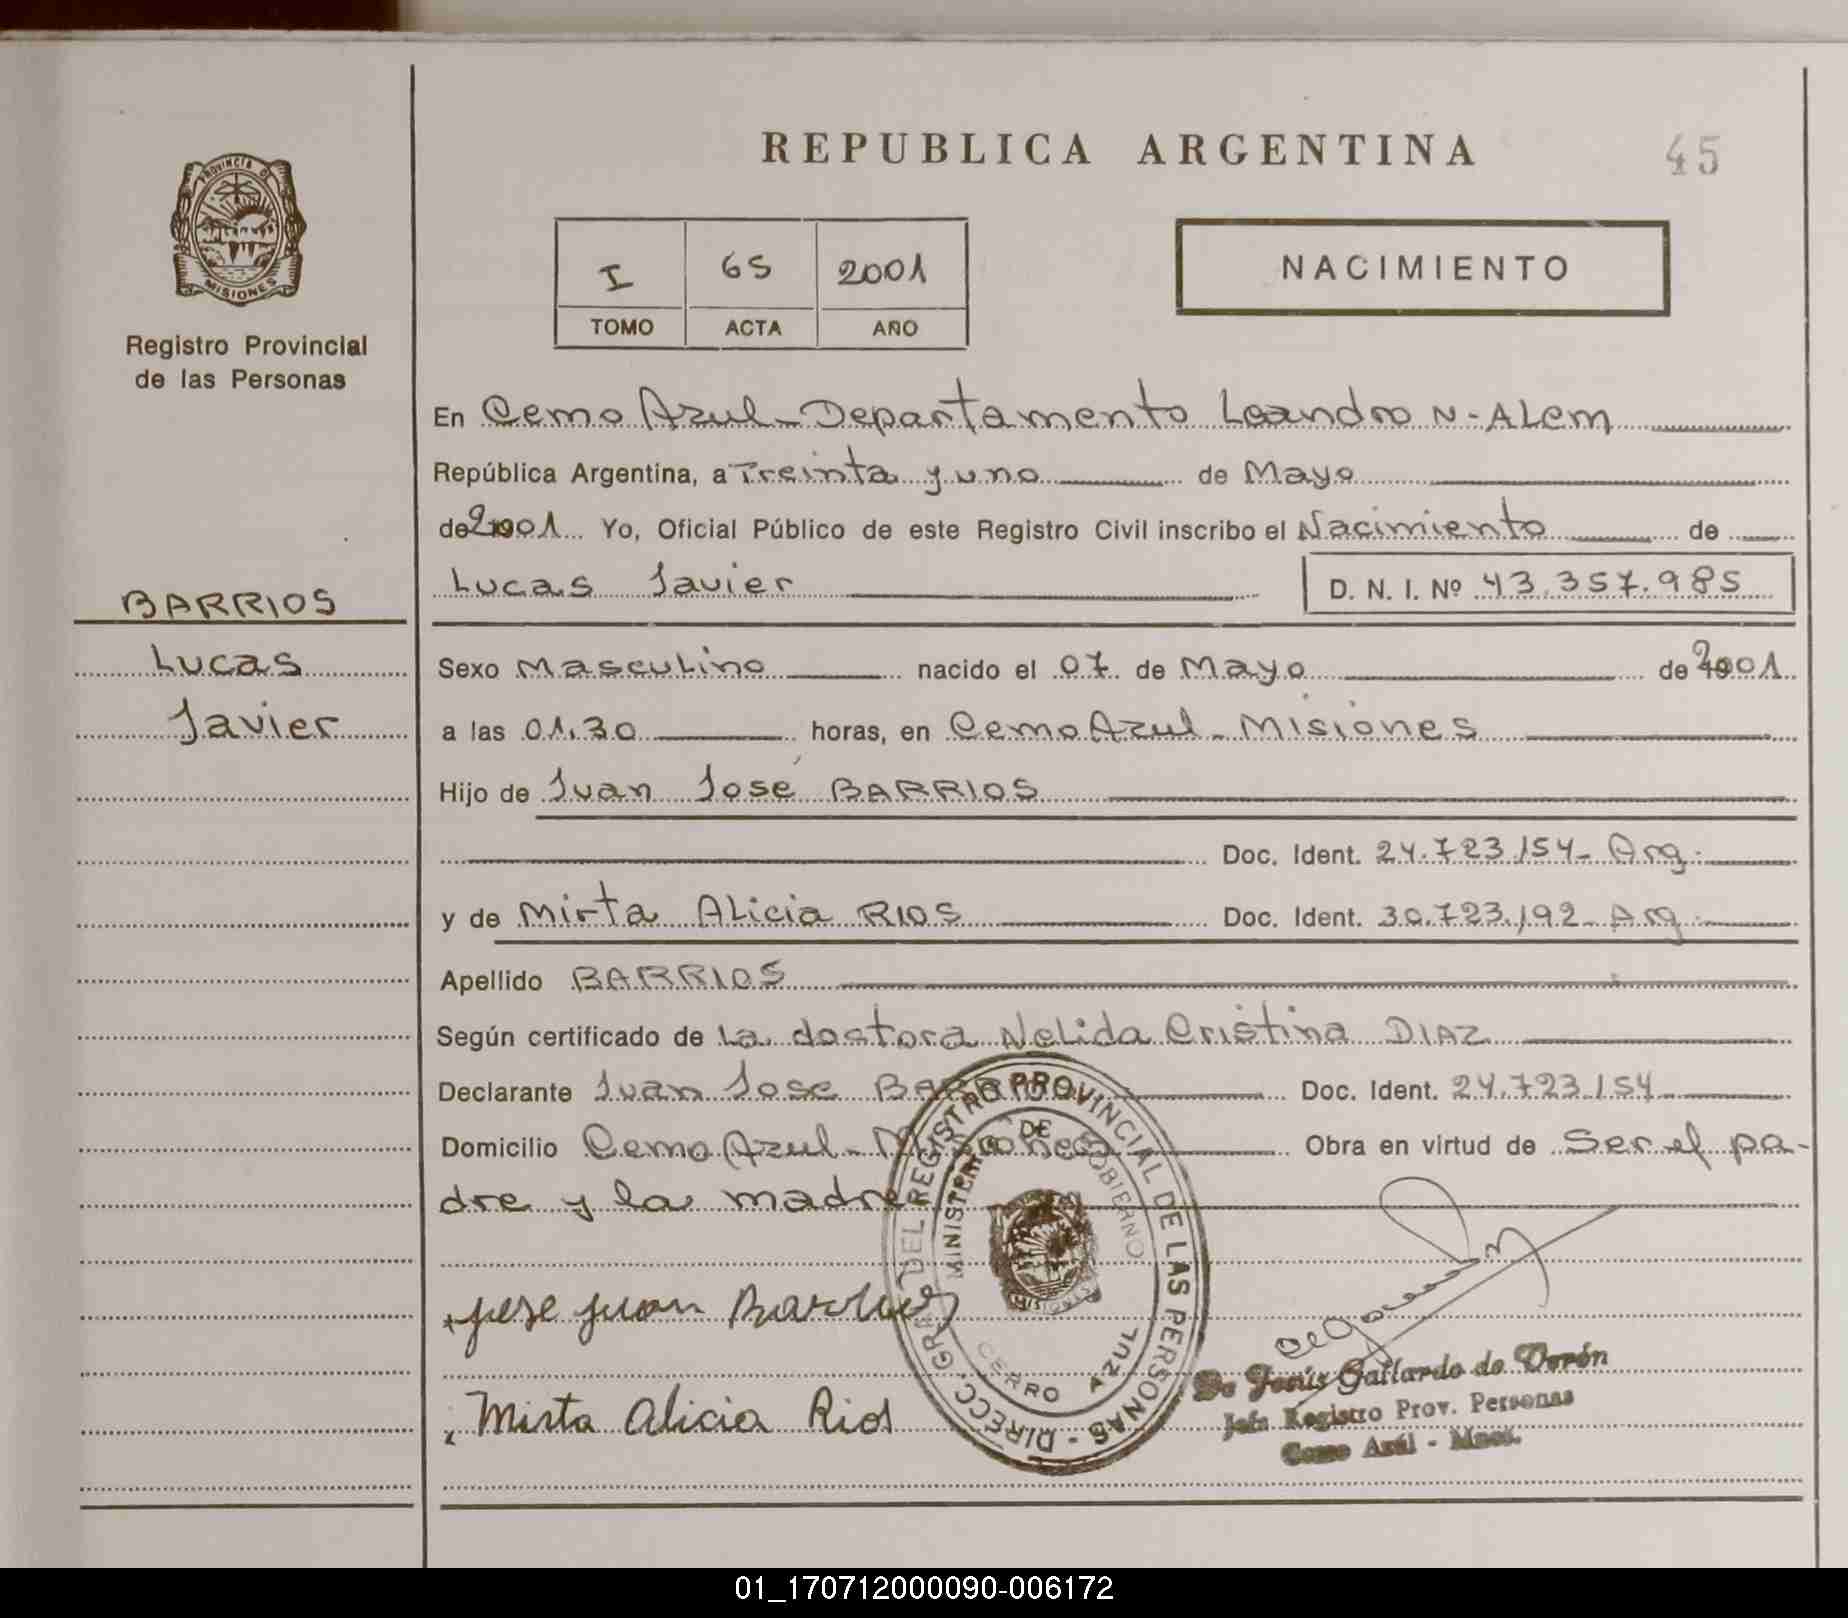 REPUBLICA ARGENTINA
45
PROVINCIA D
MISIONES
Registro Provincial
de las Personas
I 65 2001
TOMO ACTA AÑO
NACIMIENTO
En Cerro Azul - Departamento Leandro N. ALem
República Argentina, a Treinta y uno de Mayo
de 2001 Yo, Oficial Público de este Registro Civil inscribo el Nacimiento de
Lucas Javier D. N. I. Nº 43.357.985
BARRIOS
Lucas
Javier
Sexo Masculino nacido el 07 de Mayo de 2001
a las 01.30 horas, en Cerro Azul - Misiones
Hijo de Juan José BARRIOS
Doc. Ident. 24.723.154 - Arg.
y de Mirta ALicia RIOS Doc. Ident. 30.723.192 - Arg.
Apellido BARRIOS
Según certificado de La doctora Nelida Cristina DIAZ
Declarante Juan Jose BARRIOS Doc. Ident. 24.723.154
Domicilio Cerro Azul - Misiones Obra en virtud de Ser el pa-
dre y la madre
Jose Juan Barrios
Mirta Alicia Rios
DIRECC. GRAL. DEL REGISTRO PROVINCIAL DE LAS PERSONAS -
MINISTERIO DE GOBIERNO
MISIONES
CERRO AZUL
De Jesús Gallardo de Verón
Jefa Registro Prov. Personas
Cerro Azul - Mnes.
01_170712000090-006172